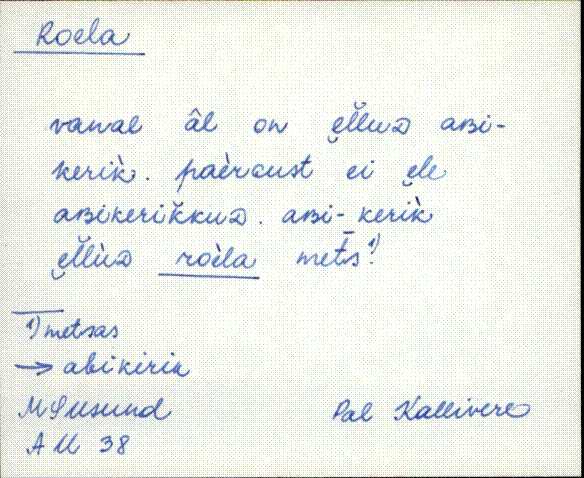 Roela
vanal âl on ęl̆l̆uᴅ aʙi-
kerik̀. paèrɢust ei ęle
aʙikerik̆kuᴅ. aʙi-kerik̀
ęl̆l̀uᴅ roèla mets¹⁾.
¹⁾ metsas
→ abikirik
M Susund
AU 38
Pal Kallivere